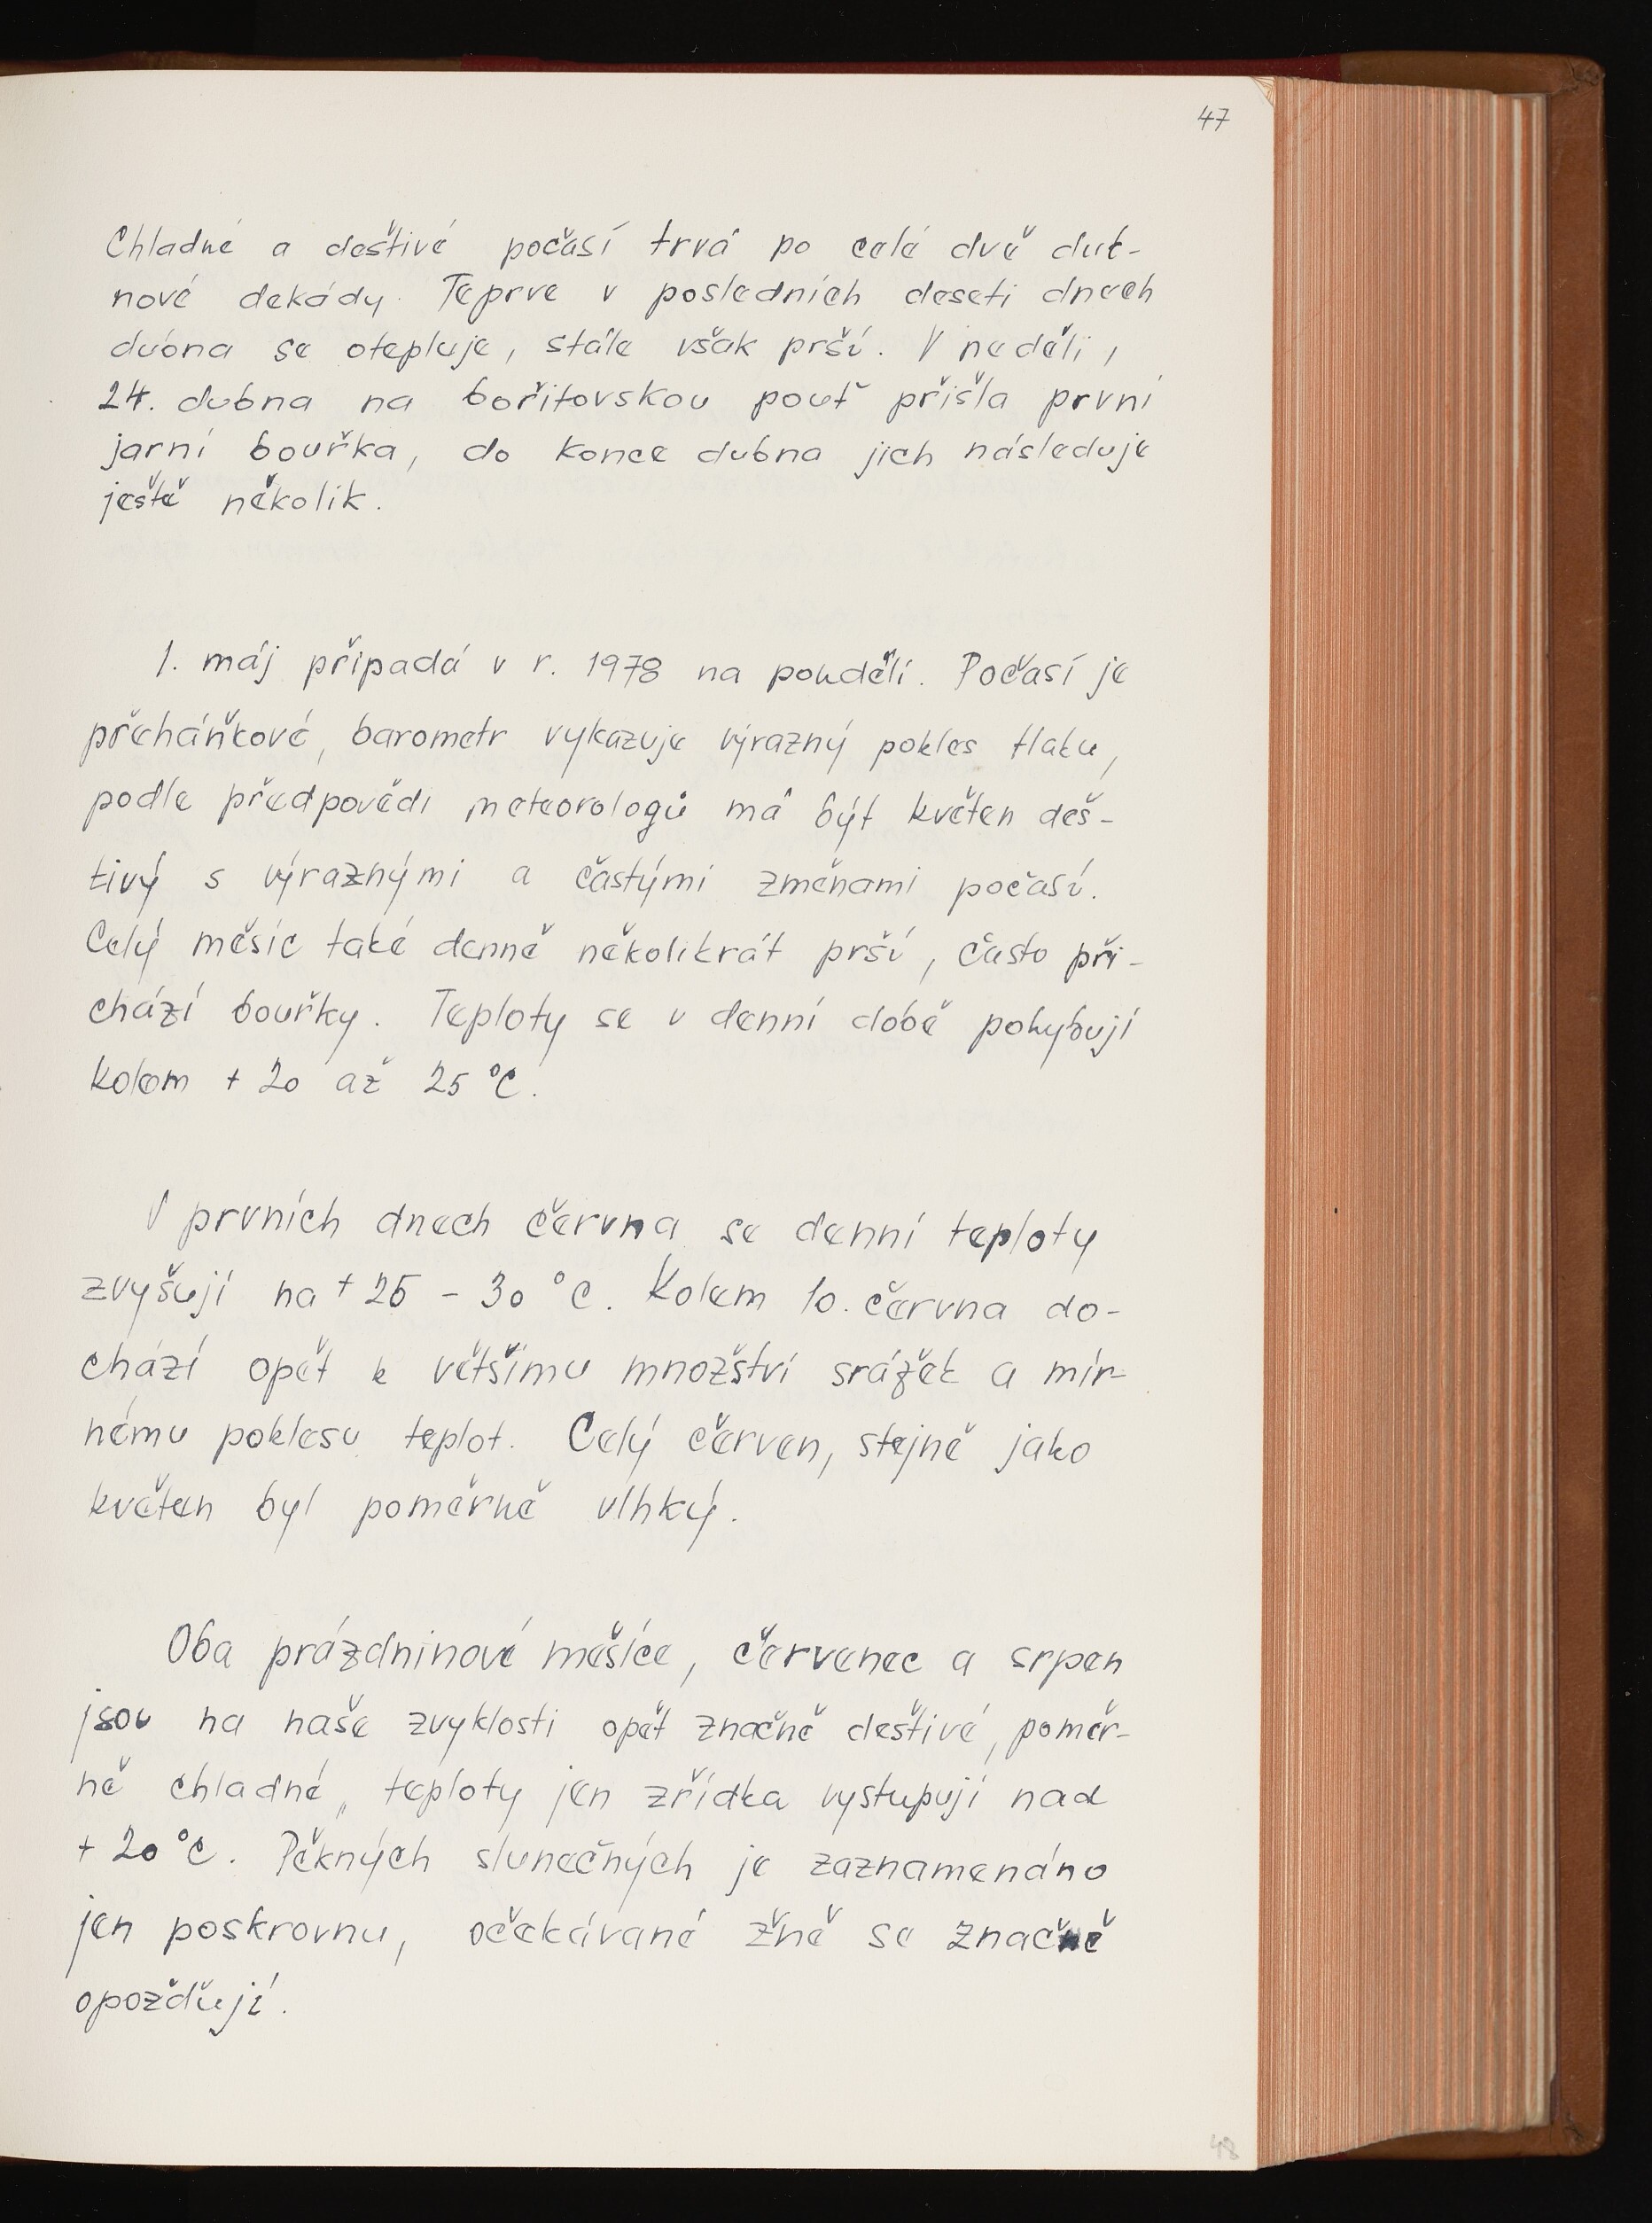 47
Chladné a deštivé počasí trvá po celé dvě dub-
nové dekády. Teprve v posledních deseti dnech
dubna se otepluje, stále však prší. V neděli,
24. dubna na bořitovskou pouť přišla první
jarní bouřka, do konce dubna jich následuje
ještě několik.
1. máj připadá v r. 1978 na pondělí. Počasí je
přeháňkové, barometr vykazuje výrazný pokles tlaku,
podle předpovědi meteorologů má být květen deš-
tivý s výraznými a častými změnami počasí.
Celý měsíc také denně několikrát prší, často při-
chází bouřky. Teploty se v denní době pohybují
kolem + 20 až 25 °C.
V prvních dnech června se denní teploty
zvyšují na + 25 - 30 °C. Kolem 10. června do-
chází opět k většímu množství srážek a mír-
nému poklesu teplot. Celý červen, stejně jako
květen byl poměrně vlhký.
Oba prázdninové měsíce, červenec a srpen
jsou na naše zvyklosti opět značně deštivé, poměr-
ně chladné, teploty jen zřídka vystupují nad
+ 20 °C. Pěkných slunečných je zaznamenáno
jen poskrovnu, očekávané žně se značně
opožďují.
48